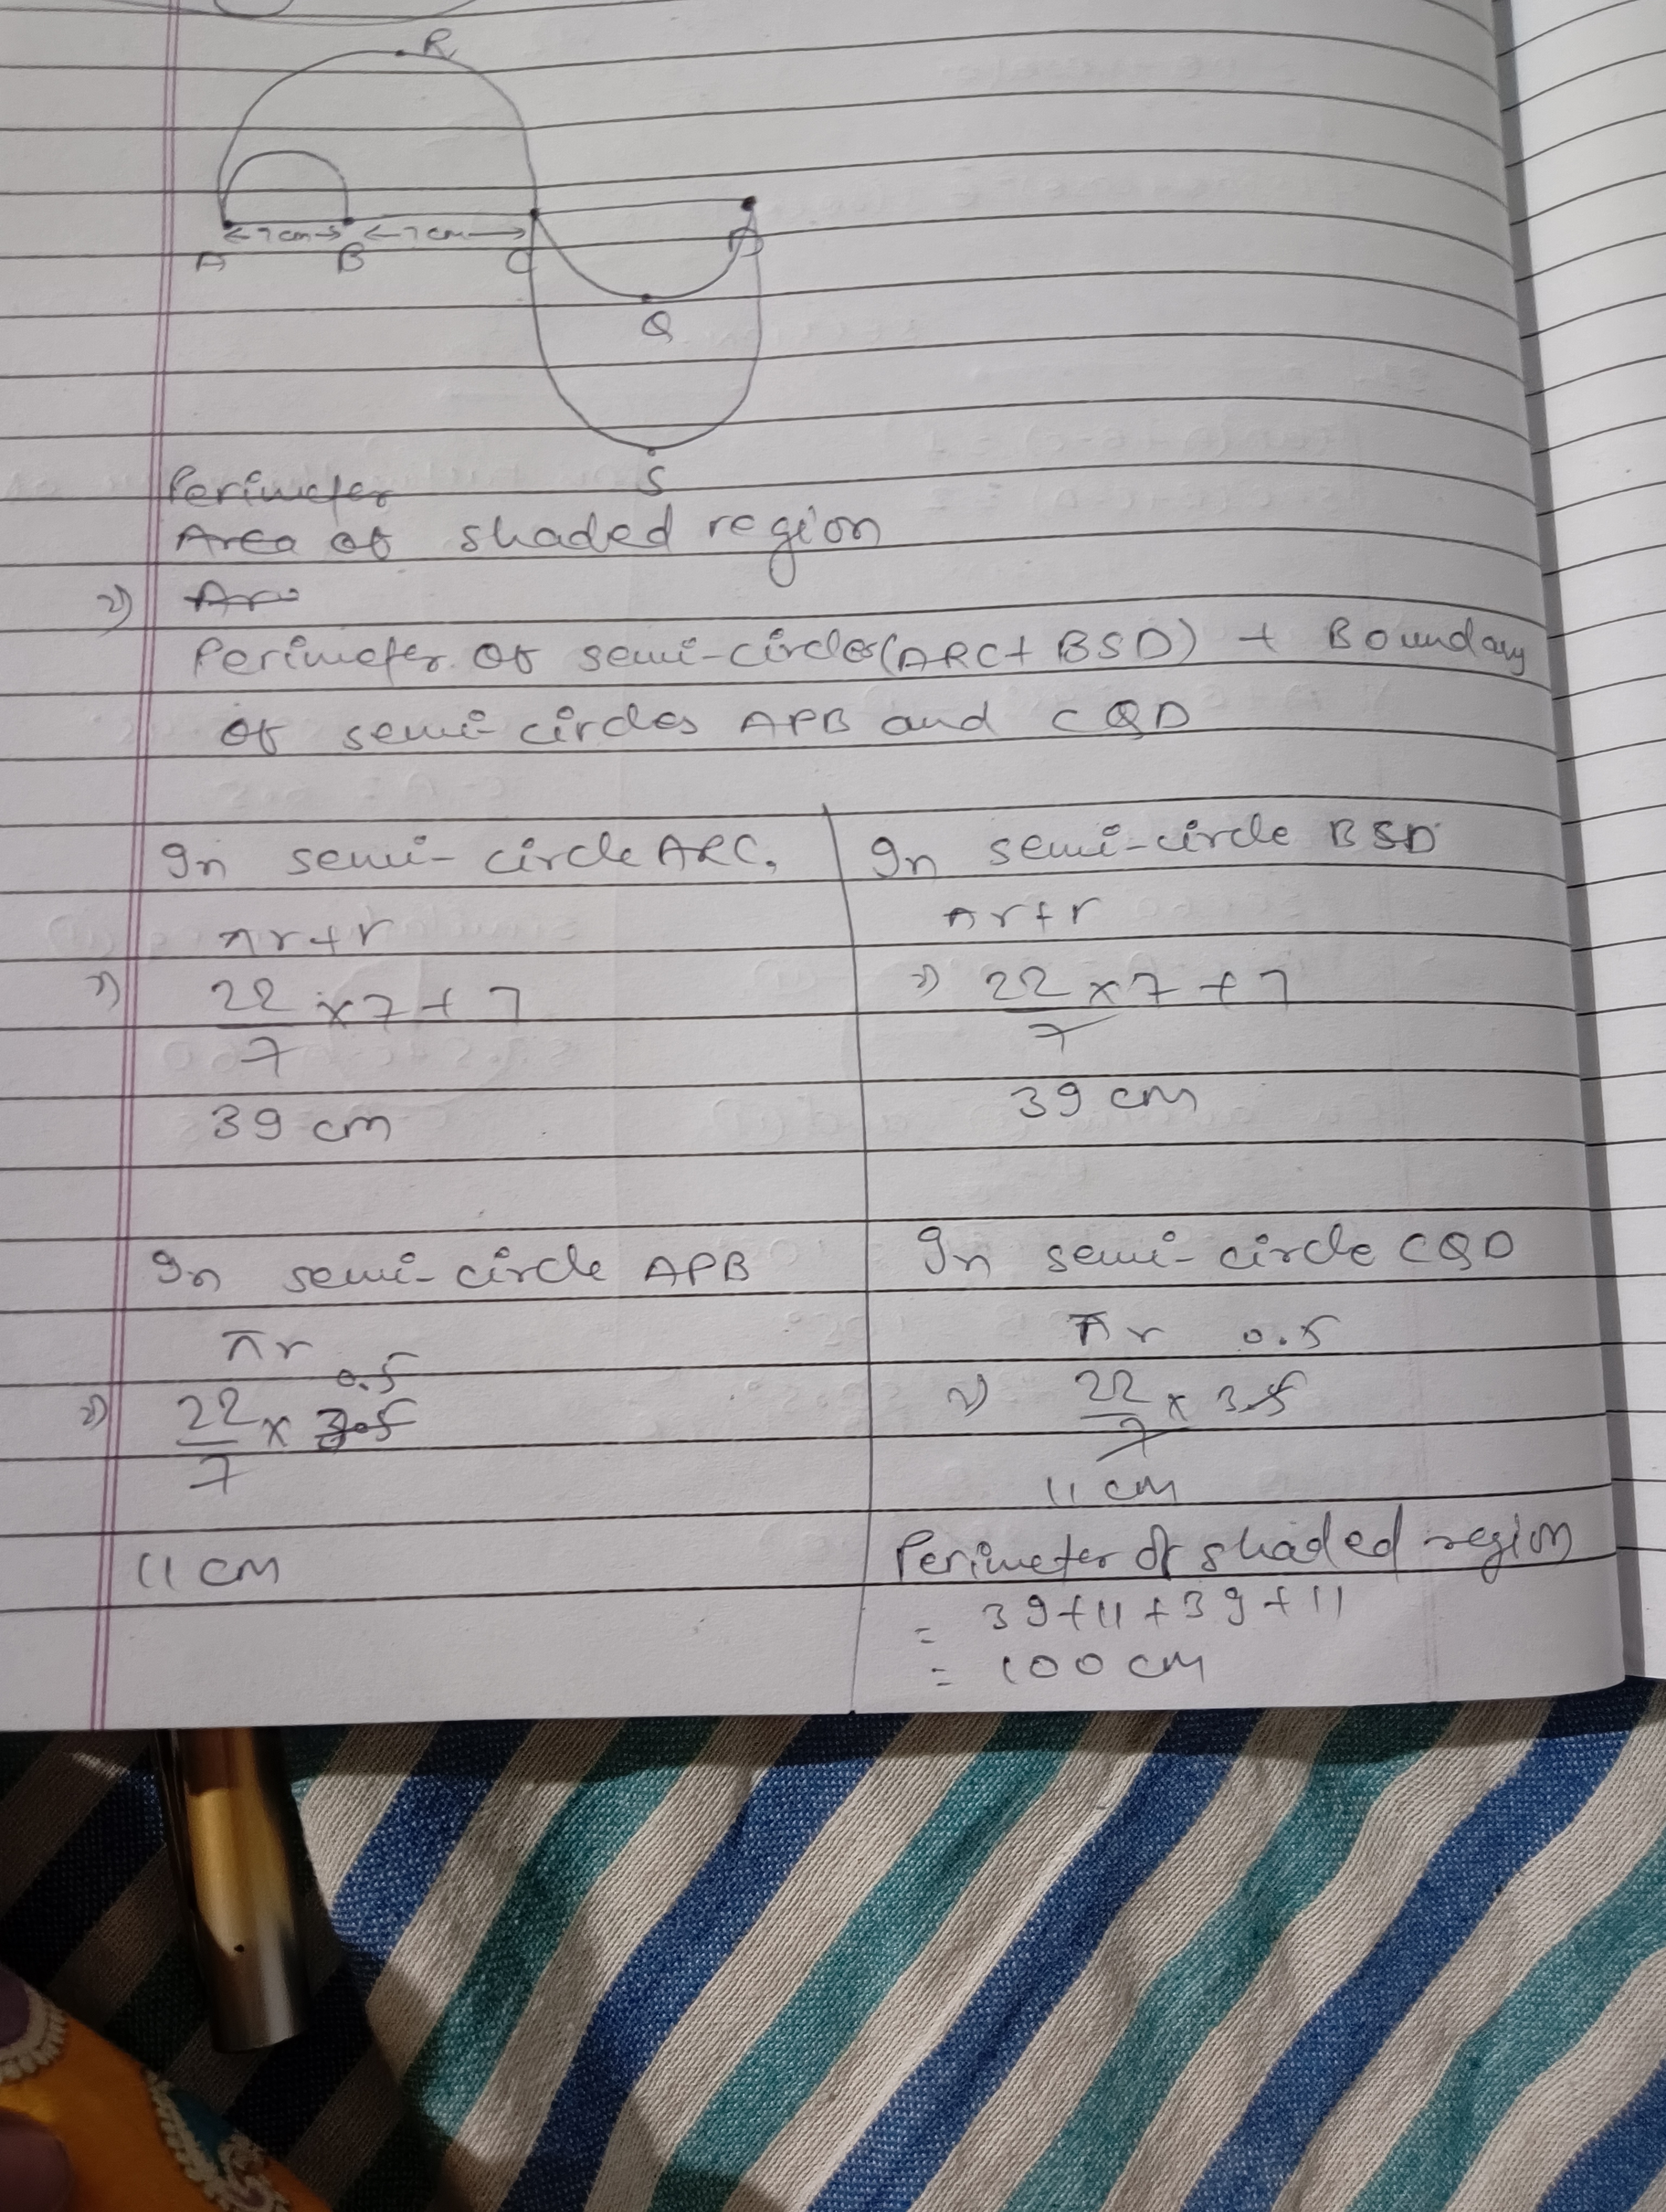 R
<-7cm-> <-7cm->
A B C D
Q
S
Perimeter
Area of shaded region
Perimeter of semi-circles(ARC+ BSD) + Boundary
of semi circles APB and CQD
In semi-circle ARC,
πr+r
22/7 x 7 + 7
39 cm
In semi-circle BSD
πr+r
22/7 x 7 + 7
39 cm
In semi-circle APB
πr
0.5
22/7 x 3.5
11 cm
In semi-circle CQD
πr 0.5
22/7 x 3.5
11 cm
Perimeter of shaded region
= 39+11+39+11
= 100 cm